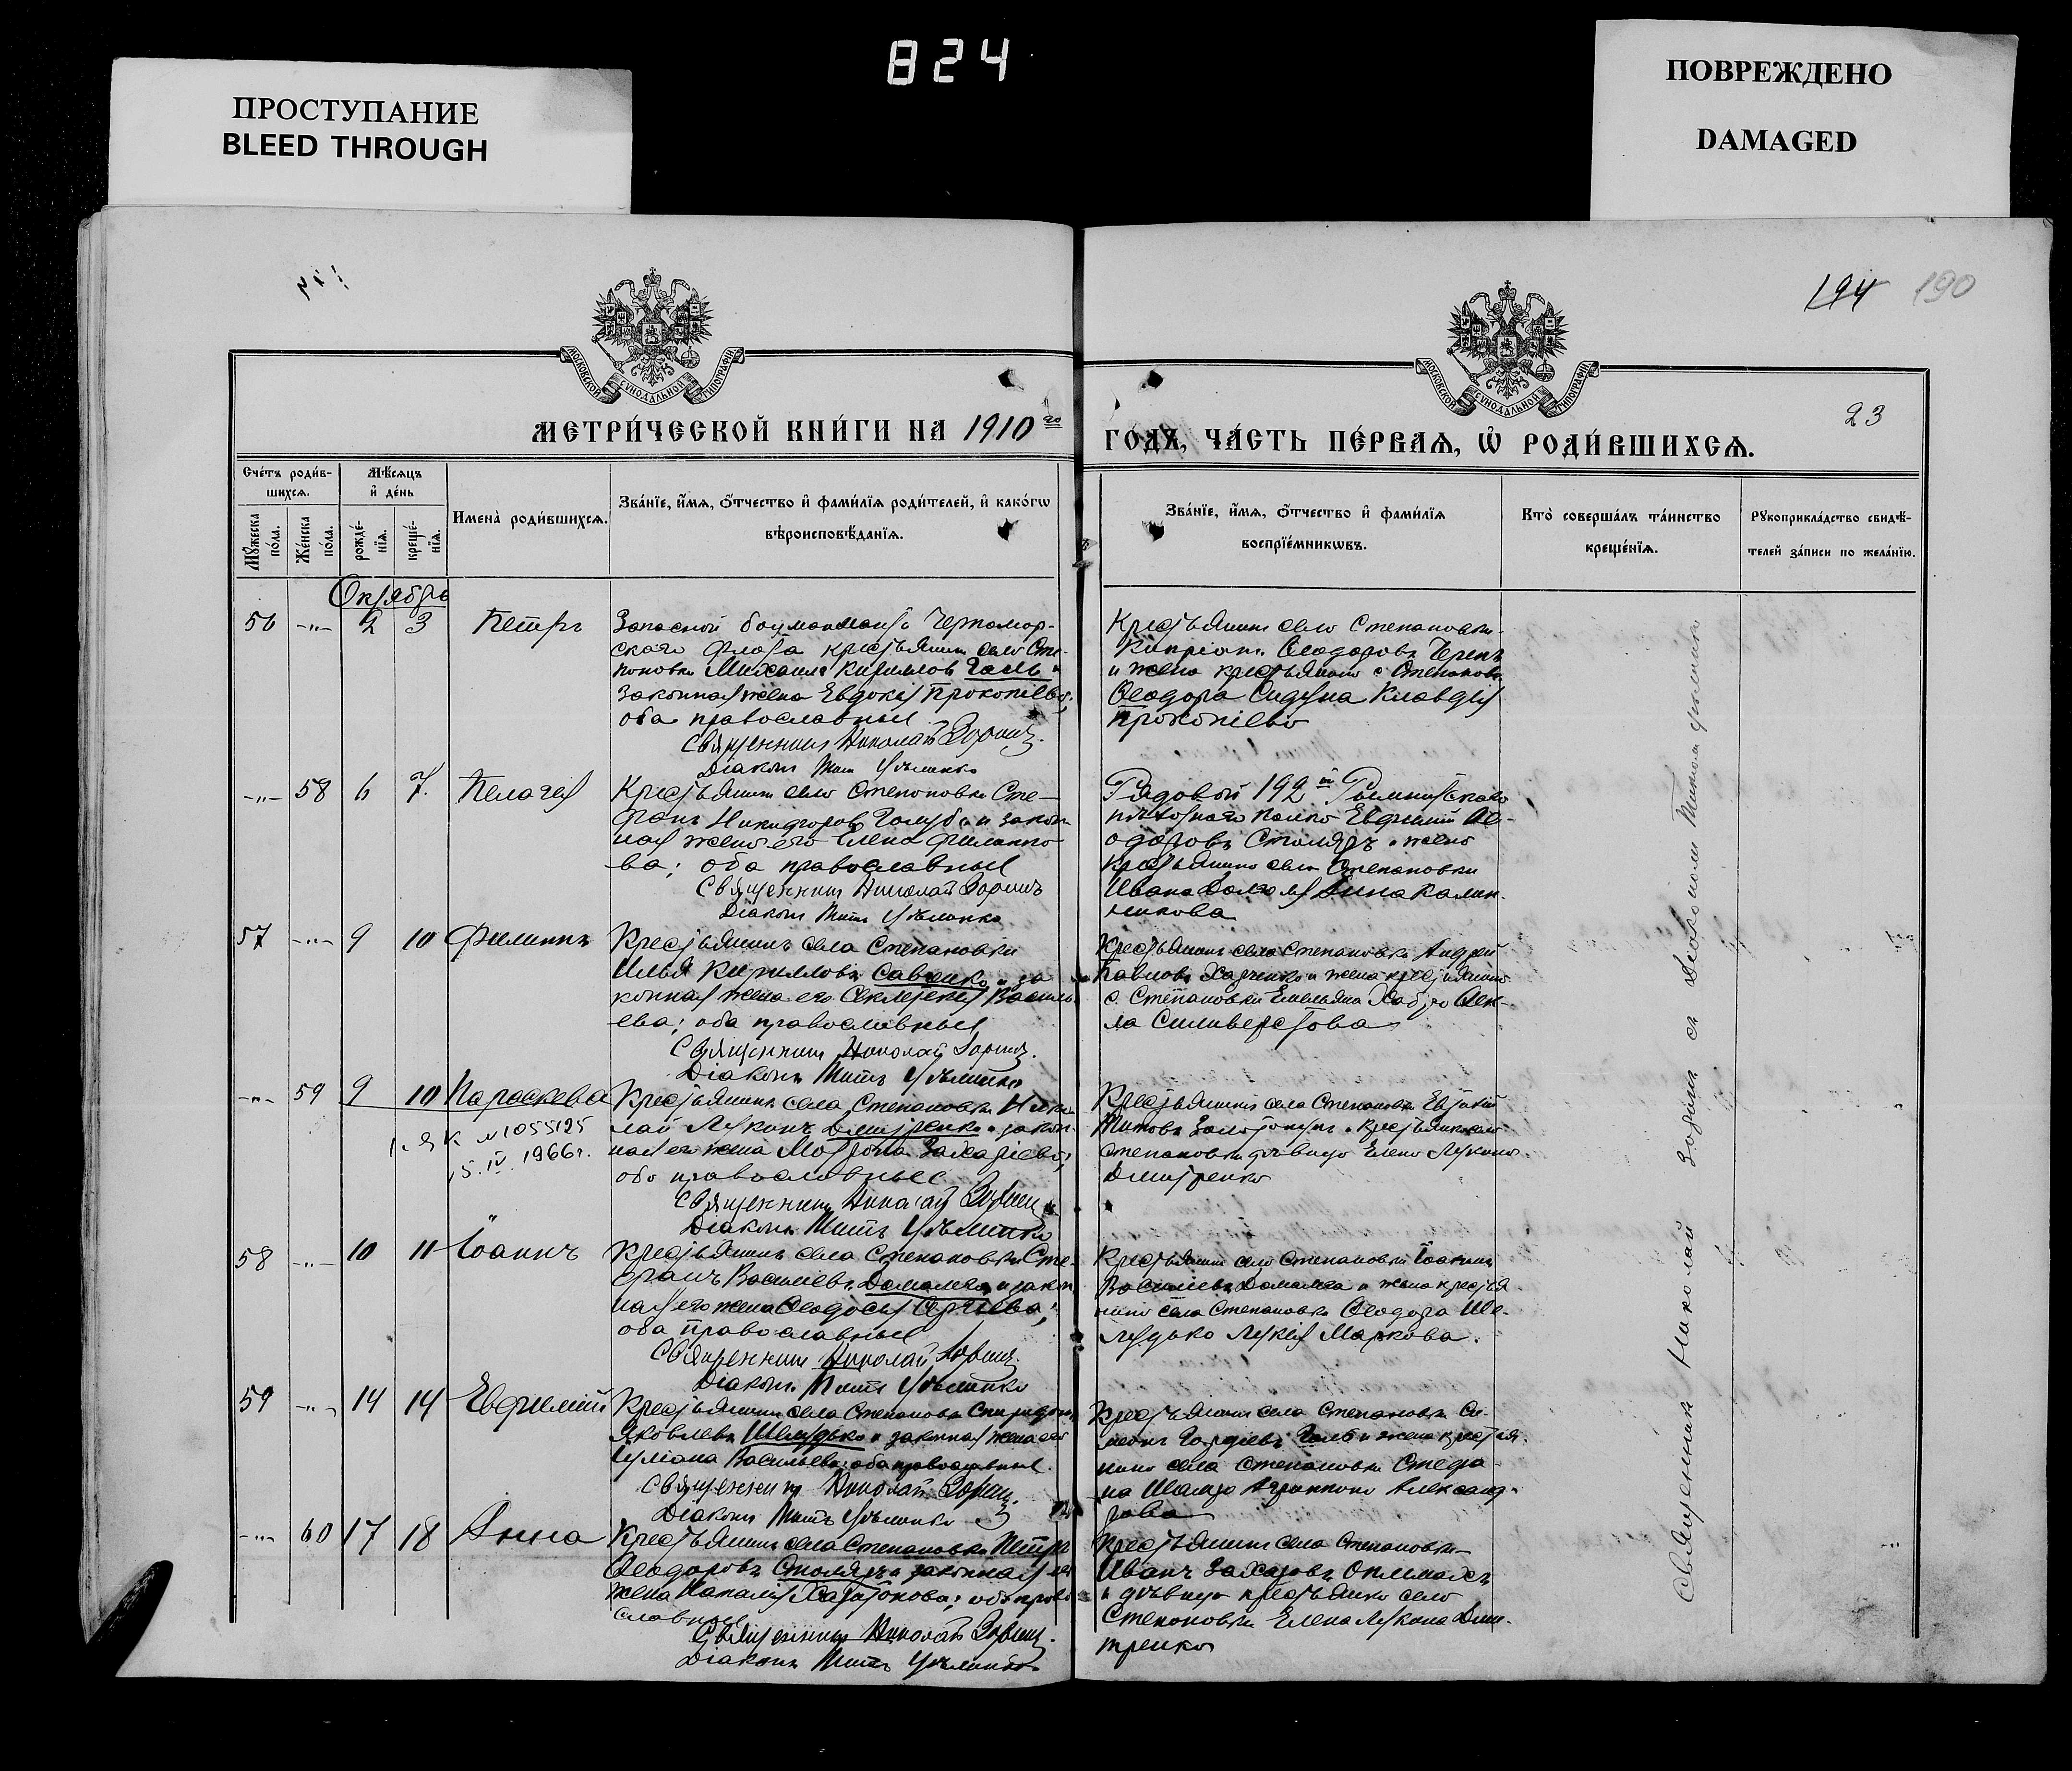 824
ПРОСТУПАНИЕ
BLEED THROUGH
ПОВРЕЖДЕНО
DAMAGED
194 190
МОСКОВСКОЙ СУНОДАЛЬНОЙ ТИПОГРАФІИ
МОСКОВСКОЙ СУНОДАЛЬНОЙ ТИПОГРАФІИ
23
МЕТРИ́ЧЕСКОЙ КНИ́ГИ НА 1910 го
ГО́ДЪ, ЧА́СТЬ ПЕ́РВАѦ, Ѡ РОДИ́ВШИХСѦ.
Сче́тъ роди́в-
шихсѧ.
Мѣ́сѧцъ
и҆ де́нь
Мꙋ́жеска по́ла.
Же́нска по́ла.
рожде́-
нїѧ.
креще́-
нїѧ.
Имена̀ роди́вшихсѧ.
Зва́нїе, и҆́мѧ, о҆́тчество и҆ фами́лїѧ роди́телей, и҆ како́гѡ
вѣроисповѣ́данїѧ.
Зва́нїе, и҆́мѧ, о҆́тчество и҆ фами́лїѧ
воспрїе́мникѡвъ.
Кто̀ соверша́лъ та́инство
креще́нїѧ.
Рꙋкоприкла́дство свидѣ́-
телей за́писи по жела́нїю.
Октябрь
56 -"- 2 3 Петръ
Запасной боцманматъ Черномор-
скаго флота крестьянинъ села Сте-
пановки Михаилъ Кириллов Галь и
законная жена Евдокія Прокопіева;
оба православные
Священникъ Николай Зоринъ.
Діаконъ Титъ
Крестьянинъ села Степановки
Кипріанъ Ѳеодоровъ Черепъ
и жена крестьянина с. Степановки
Ѳеодора Клавдія
Прокопіева
-"- 58 6 7. Пелагея
Крестьянинъ села Степановки Сте-
фанъ Никифоровъ Голубъ и закон-
ная жена его Елена Филиппо-
ва; оба православные
Священникъ Николай Зоринъ
Діаконъ Титъ
Рядовой 192й Рымникскаго
пѣхотнаго полка Евфимій Ѳе-
одоровъ Столяръ и жена
крестьянина села Степановки
Ивана Анна Калин-
никова
57 -"- 9 10 Филиппъ
Крестьянинъ села Степановки
Илья Кирилловъ Савенко и за-
конная жена его Василь-
ева; оба православные
Священникъ Николай Зоринъ.
Діаконъ Титъ
Крестьянинъ села Степановки Андрей
Павловъ Харченко и жена крестьянина
с. Степановки Емельяна Ѳек-
ла Сильверстова
-"- 59 9 10 Параскева
№1055125
15.IV.1966г.
Крестьянинъ села Степановки Нико-
лай Лукинъ Дмитренко и закон-
ная его жена Матрона Захаріева;
оба православные
Священникъ Николай Зоринъ
Діаконъ Титъ
Крестьянинъ села Степановки
Титовъ и крестьянина села
Степановки дѣвица Елена Лукина
Дмитренко
58 -"- 10 11 Іоаннъ
Крестьянинъ села Степановки Сте-
фанъ Василіевъ и закон-
ная его жена Ѳеодосія
оба православные
Священникъ Николай Зоринъ.
Діаконъ Титъ
Крестьянинъ села Степановки
Василіевъ и жена крестья-
нина села Степановки Ѳеодора Ше-
лудько Лукія Маркова.
59 -"- 14 14 Евфимій
Крестьянинъ села Степановки Спиридонъ
Яковлевъ Шелудько и законная жена его
Іуліана Васильева; оба православные.
Священникъ Николай Зоринъ.
Діаконъ Титъ
Крестьянинъ села Степановки Си-
меонъ Гордіевъ Галь и жена крестья-
нина села Степановки Стефа-
на Агриппина Александ-
рова
-"- 60 17 18 Анна
Крестьянинъ села Степановки Петръ
Ѳеодоровъ Столяръ и законная его
жена Наталія Харитонова; оба право-
славные
Священникъ Николай Зоринъ.
Діаконъ Титъ
Крестьянинъ села Степановки
Иванъ Захаровъ
и дѣвица крестьянка села
Степановки Елена Лукина Дми-
тренко
Священникъ Николай Зоринъ съ Діакономъ Титомъ